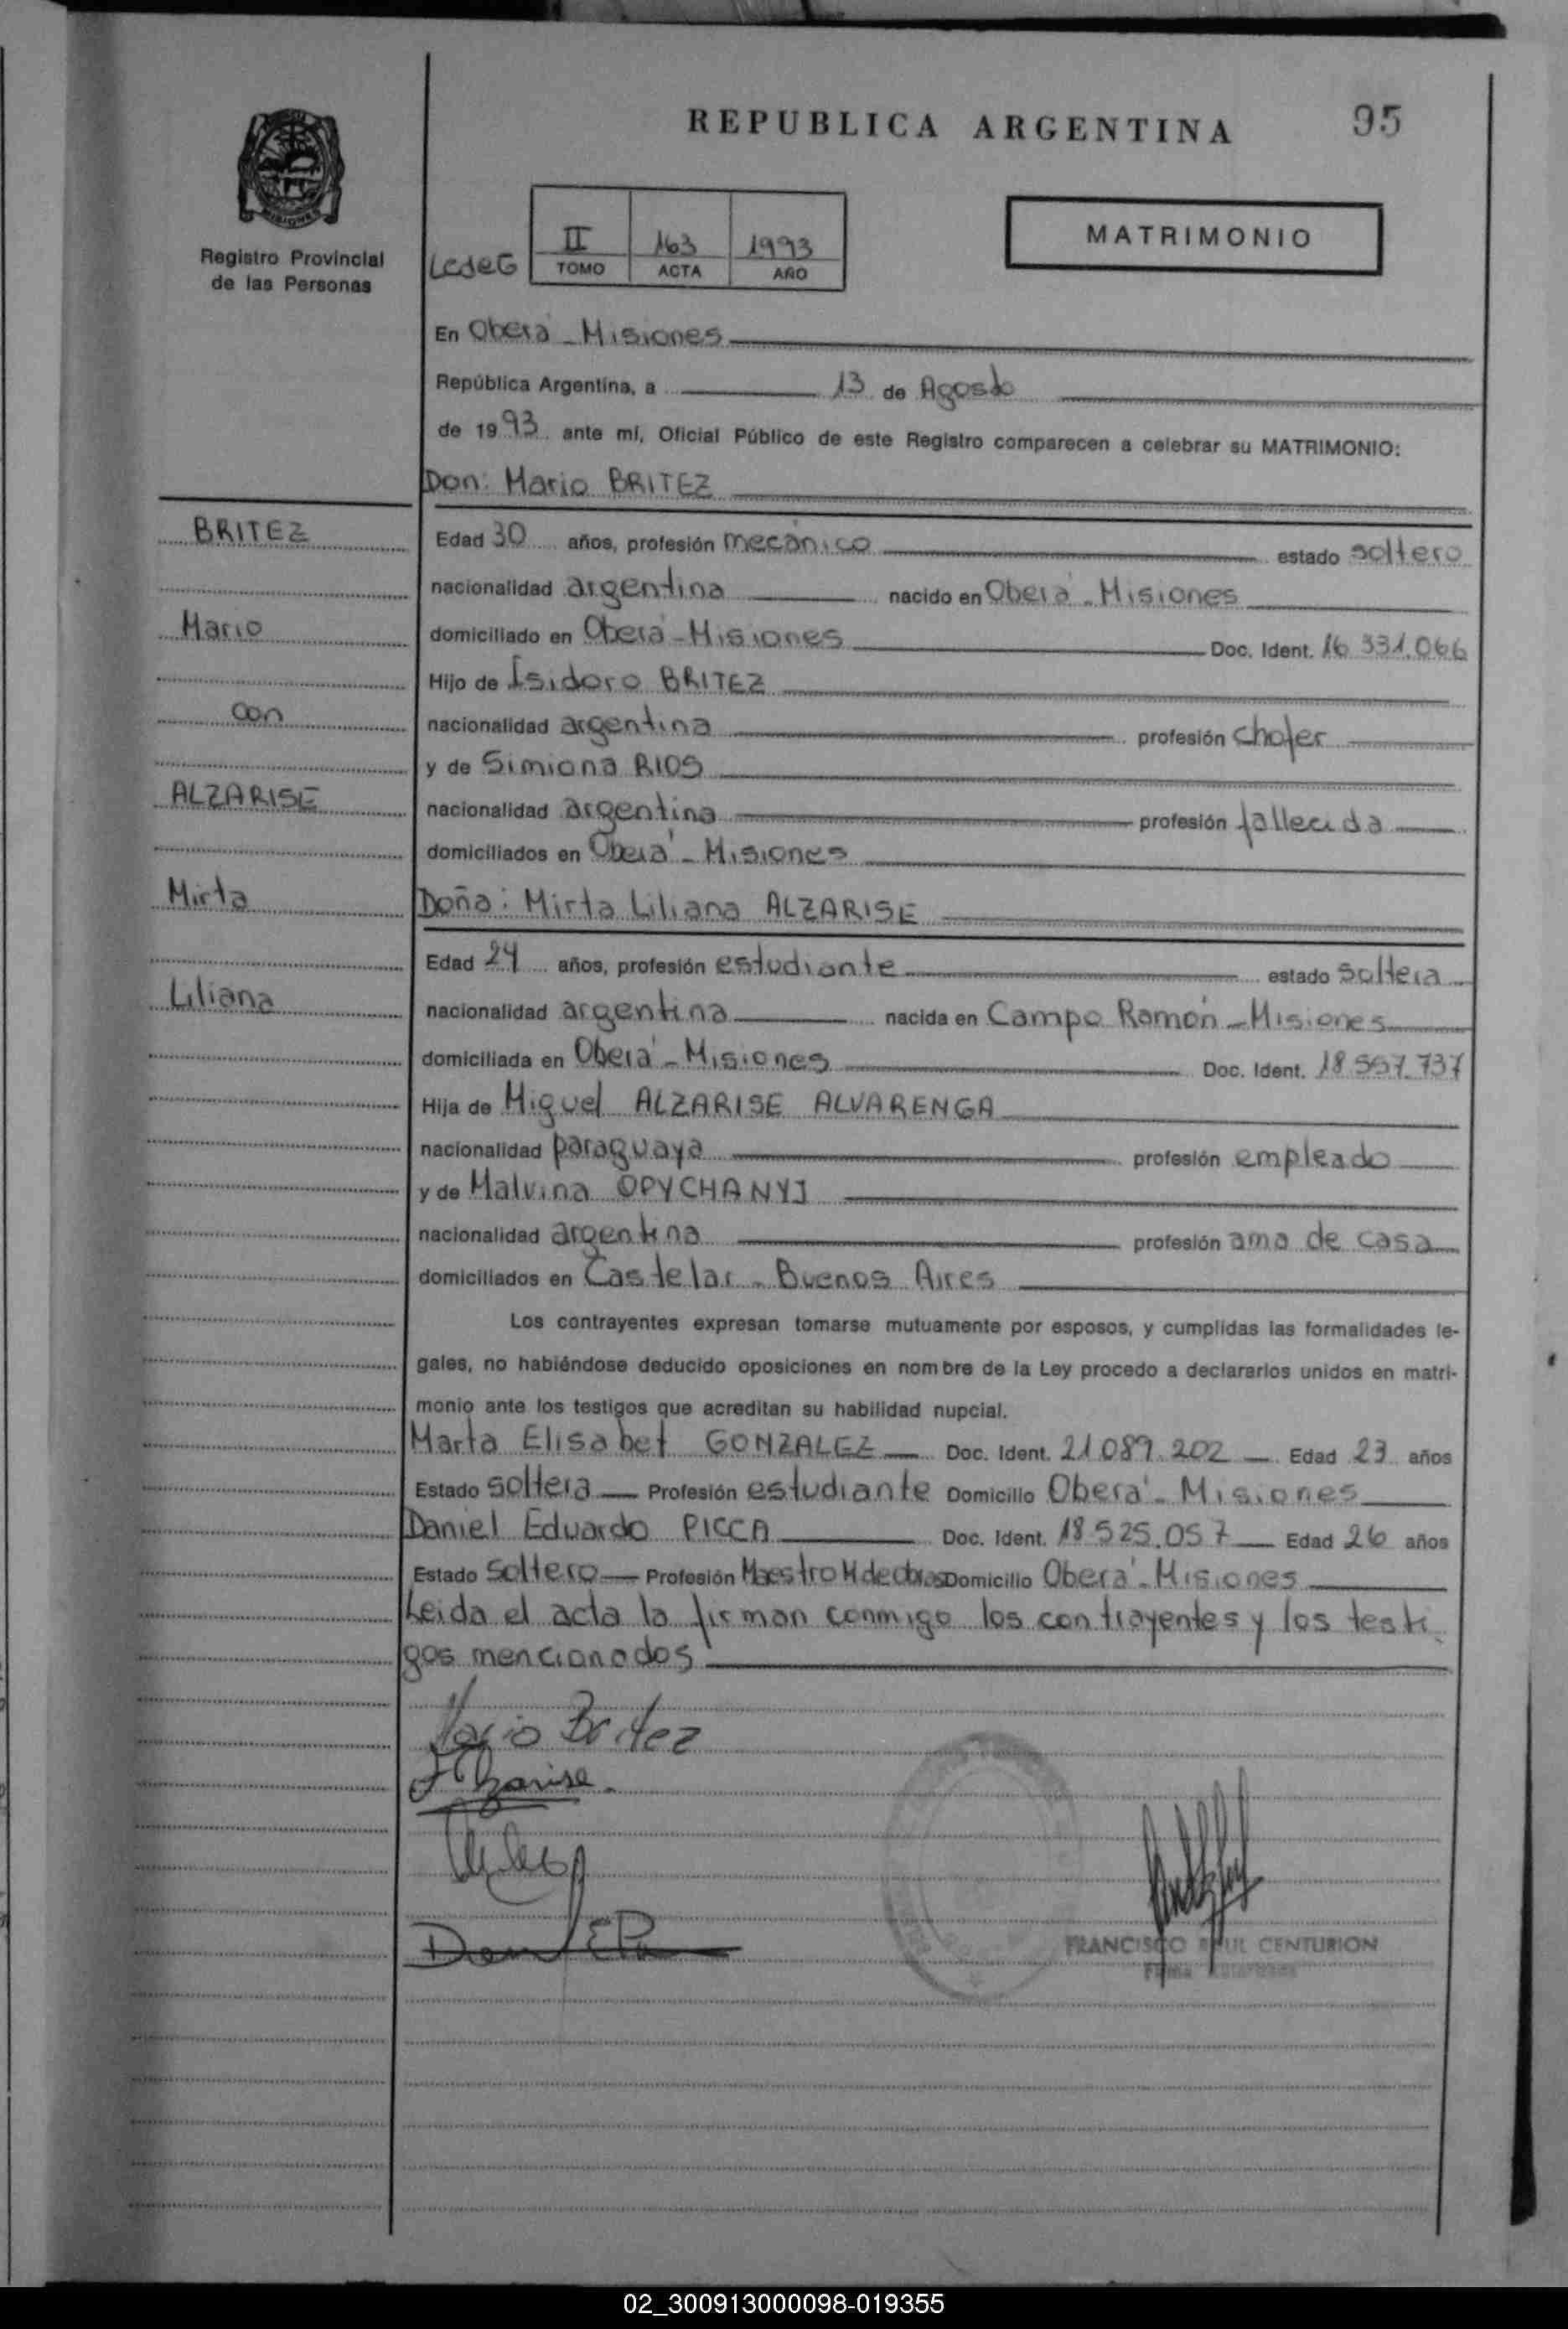 REPUBLICA ARGENTINA
95
MISIONES
Registro Provincial
de las Personas
II
163
1993
TOMO
ACTA
AÑO
MATRIMONIO
En Oberá - Misiones
República Argentina, a 13 de Agosto
de 1993 ante mí, Oficial Público de este Registro comparecen a celebrar su MATRIMONIO:
Don: Mario BRITEZ
BRITEZ
Edad 30 años, profesión mecánico estado soltero
nacionalidad argentina nacido en Oberá - Misiones
Mario
domiciliado en Oberá - Misiones Doc. Ident. 16.331.066
Hijo de Isidoro BRITEZ
con
nacionalidad argentina profesión chofer
y de Simiona RIOS
ALZARISE
nacionalidad argentina profesión fallecida
domiciliados en Oberá - Misiones
Mirta
Doña: Mirta Liliana ALZARISE
Edad 24 años, profesión estudiante estado soltera
Liliana
nacionalidad argentina nacida en Campo Ramón - Misiones
domiciliada en Oberá - Misiones Doc. Ident. 18.557.737
Hija de Miguel ALZARISE ALVARENGA
nacionalidad paraguaya profesión empleado
y de Malvina OPYCHANYJ
nacionalidad argentina profesión ama de casa
domiciliados en Castelar - Buenos Aires
Los contrayentes expresan tomarse mutuamente por esposos, y cumplidas las formalidades le-
gales, no habiéndose deducido oposiciones en nombre de la Ley procedo a declararlos unidos en matri-
monio ante los testigos que acreditan su habilidad nupcial.
Marta Elisabet GONZALEZ Doc. Ident. 21.089.202 Edad 23 años
Estado soltera Profesión estudiante Domicilio Oberá - Misiones
Daniel Eduardo PICCA Doc. Ident. 18.525.057 Edad 26 años
Estado soltero Profesión Maestro M de obras Domicilio Oberá - Misiones
Leida el acta la firman conmigo los contrayentes y los testi
gos mencionados
Mario Britez
Alzarise
FRANCISCO RAUL CENTURION
02_300913000098-019355